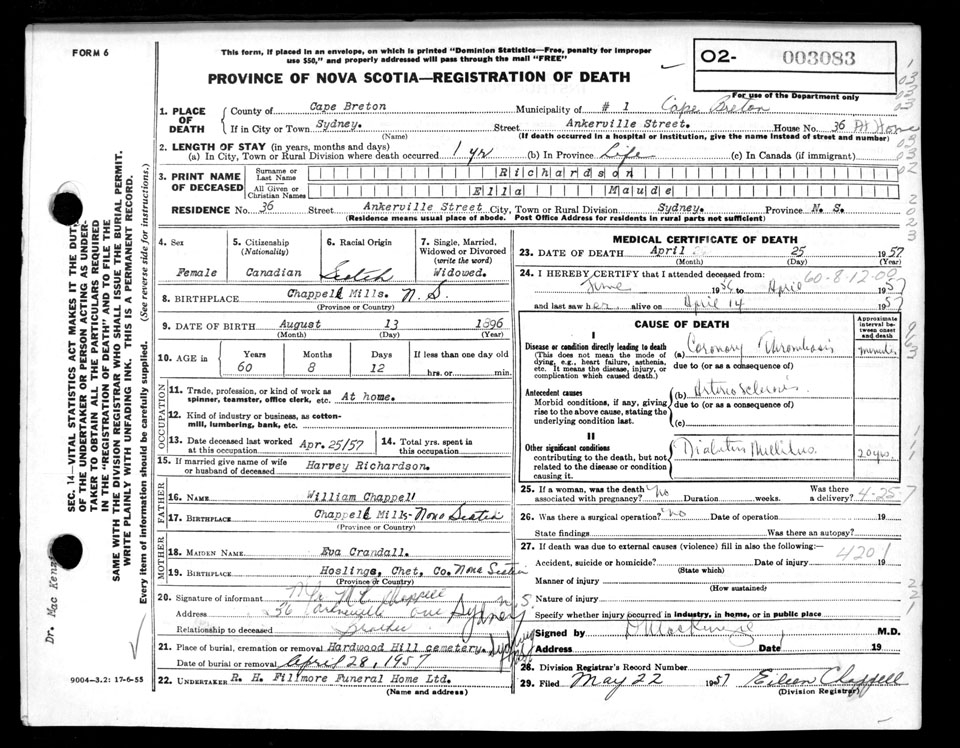 FORM 6
This form, if placed in an envelope, on which is printed "Dominion Statistics—Free, penalty for improper
use $50," and properly addressed will pass through the mail "FREE"
O2- 003083
For use of the Department only
PROVINCE OF NOVA SCOTIA—REGISTRATION OF DEATH
SEC. 14—VITAL STATISTICS ACT MAKES IT THE DUTY
OF THE UNDERTAKER OR PERSON ACTING AS UNDER-
TAKER TO OBTAIN ALL THE PARTICULARS REQUIRED
IN THE "REGISTRATION OF DEATH" AND TO FILE THE
SAME WITH THE DIVISION REGISTRAR WHO SHALL ISSUE THE BURIAL PERMIT.
WRITE PLAINLY WITH UNFADING INK. THIS IS A PERMANENT RECORD.
Every item of information should be carefully supplied. (See reverse side for instructions.)
1. PLACE OF DEATH
County of Cape Breton Municipality of # 1 Cape Breton
If in City or Town Sydney. Street Ankerville Street. House No. 36 At Home
(Name) (If death occurred in a hospital or institution, give the name instead of street and number)
2. LENGTH OF STAY (in years, months and days)
(a) In City, Town or Rural Division where death occurred 1 yr (b) In Province Life (c) In Canada (if immigrant)
3. PRINT NAME OF DECEASED
Surname or Last Name Richardson
All Given or Christian Names Ella Maude
RESIDENCE No. 36 Street Ankerville Street City, Town or Rural Division Sydney. Province N. S.
(Residence means usual place of abode. Post Office Address for residents in rural parts not sufficient)
4. Sex Female
5. Citizenship (Nationality) Canadian
6. Racial Origin Scotch
7. Single, Married, Widowed or Divorced (write the word) Widowed.
8. BIRTHPLACE Chappell Mills. N. S.
(Province or Country)
9. DATE OF BIRTH August 13 1896
(Month) (Day) (Year)
10. AGE in Years Months Days If less than one day old
60 8 12 hrs. or min.
OCCUPATION
11. Trade, profession, or kind of work as
spinner, teamster, office clerk, etc. At home.
12. Kind of industry or business, as cotton-
mill, lumbering, bank, etc.
13. Date deceased last worked at this occupation Apr. 25/57
14. Total yrs. spent in this occupation
15. If married give name of wife
or husband of deceased Harvey Richardson.
FATHER
16. NAME William Chappell
17. BIRTHPLACE Chappell Mills- Nova Scotia
(Province or Country)
MOTHER
18. MAIDEN NAME Eva Crandall.
19. BIRTHPLACE Hoslings, Chet, Co. Nova Scotia
(Province or Country)
20. Signature of informant Chappell
Address 36 Sydney N.S.
Relationship to deceased Brother
21. Place of burial, cremation or removal Hardwood Hill cemetery. Sydney
Date of burial or removal April 28, 1957
22. UNDERTAKER R. H. Fillmore Funeral Home Ltd.
(Name and address)
MEDICAL CERTIFICATE OF DEATH
23. DATE OF DEATH April 25 1957
(Month) (Day) (Year)
24. I HEREBY CERTIFY that I attended deceased from:
60-8-12-09
June 1956 to April 1957
and last saw her alive on April 14 1957
CAUSE OF DEATH
Approximate interval between onset and death
I
Disease or condition directly leading to death
(This does not mean the mode of
dying, e.g., heart failure, asthenia,
etc. It means the disease, injury, or
complication which caused death.)
(a) Coronary Thrombosis minutes
due to (or as a consequence of)
Antecedent causes
Morbid conditions, if any, giving
rise to the above cause, stating the
underlying condition last.
(b) Arteriosclerosis
due to (or as a consequence of)
(c)
II
Other significant conditions
contributing to the death, but not
related to the disease or condition
causing it.
Diabetes Mellitus 20 yrs.
25. If a woman, was the death
associated with pregnancy? no Duration weeks. Was there a delivery? 4-25-7
26. Was there a surgical operation? no Date of operation 19
State findings Was there an autopsy?
27. If death was due to external causes (violence) fill in also the following:—
4201
Accident, suicide or homicide? Date of injury 19
(State which)
Manner of injury
(How sustained)
Nature of injury
Specify whether injury occurred in industry, in home, or in public place
Signed by D MacKenzie M.D.
Address Date 19
28. Division Registrar's Record Number
29. Filed May 22 1957 Eileen Chappell
(Division Registrar)
9004-3.2: 17-6-55